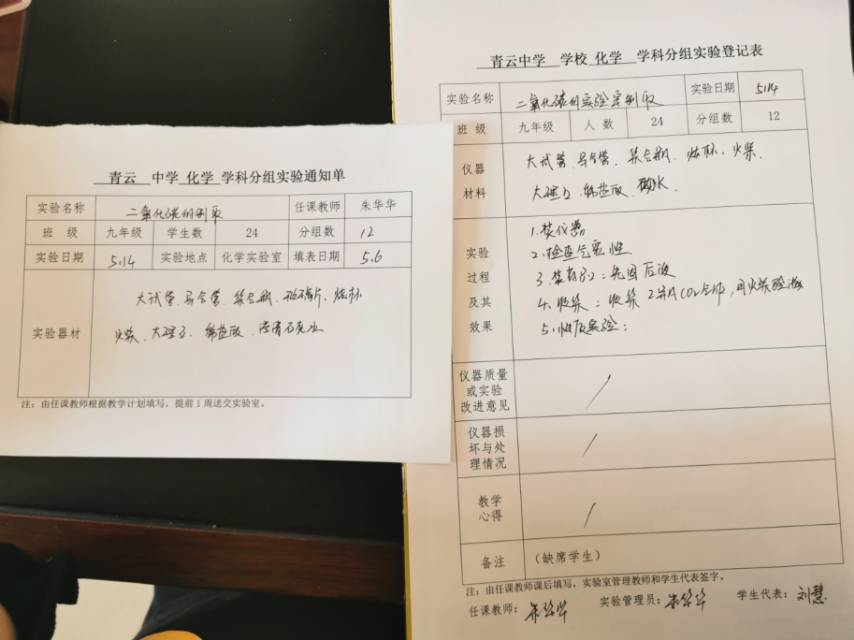 青云 中学 化学 学科分组实验通知单
实验名称 二氧化碳的制取 任课教师 朱华华
班 级 九年级 学生数 24 分组数 12
实验日期 5.14 实验地点 化学实验室 填表日期 5.6
大试管、导气管、集气瓶、玻璃片、烧杯
实验器材
火柴、大理石、稀盐酸、澄清石灰水
注：由任课教师根据教学计划填写，提前1周送交实验室。
青云中学 学校 化学 学科分组实验登记表
实验名称 二氧化碳的实验室制取 实验日期 5.14
班 级 九年级 人 数 24 分组数 12
仪器
材料
大试管、导气管、集气瓶、烧杯、火柴、
大理石、稀盐酸、
实验
过程
及其
效果
1.
2.检查气密性
3.装药品：先固后液
4.收集：收集2
5.性质实验：
仪器质量
或实验
改进意见
/
仪器损
坏与处
理情况
/
教学
心得
/
备注 (缺席学生)
注：由任课教师课后填写，实验室管理教师和学生代表签字。
任课教师：朱华华 实验管理员：朱华华 学生代表：刘慧